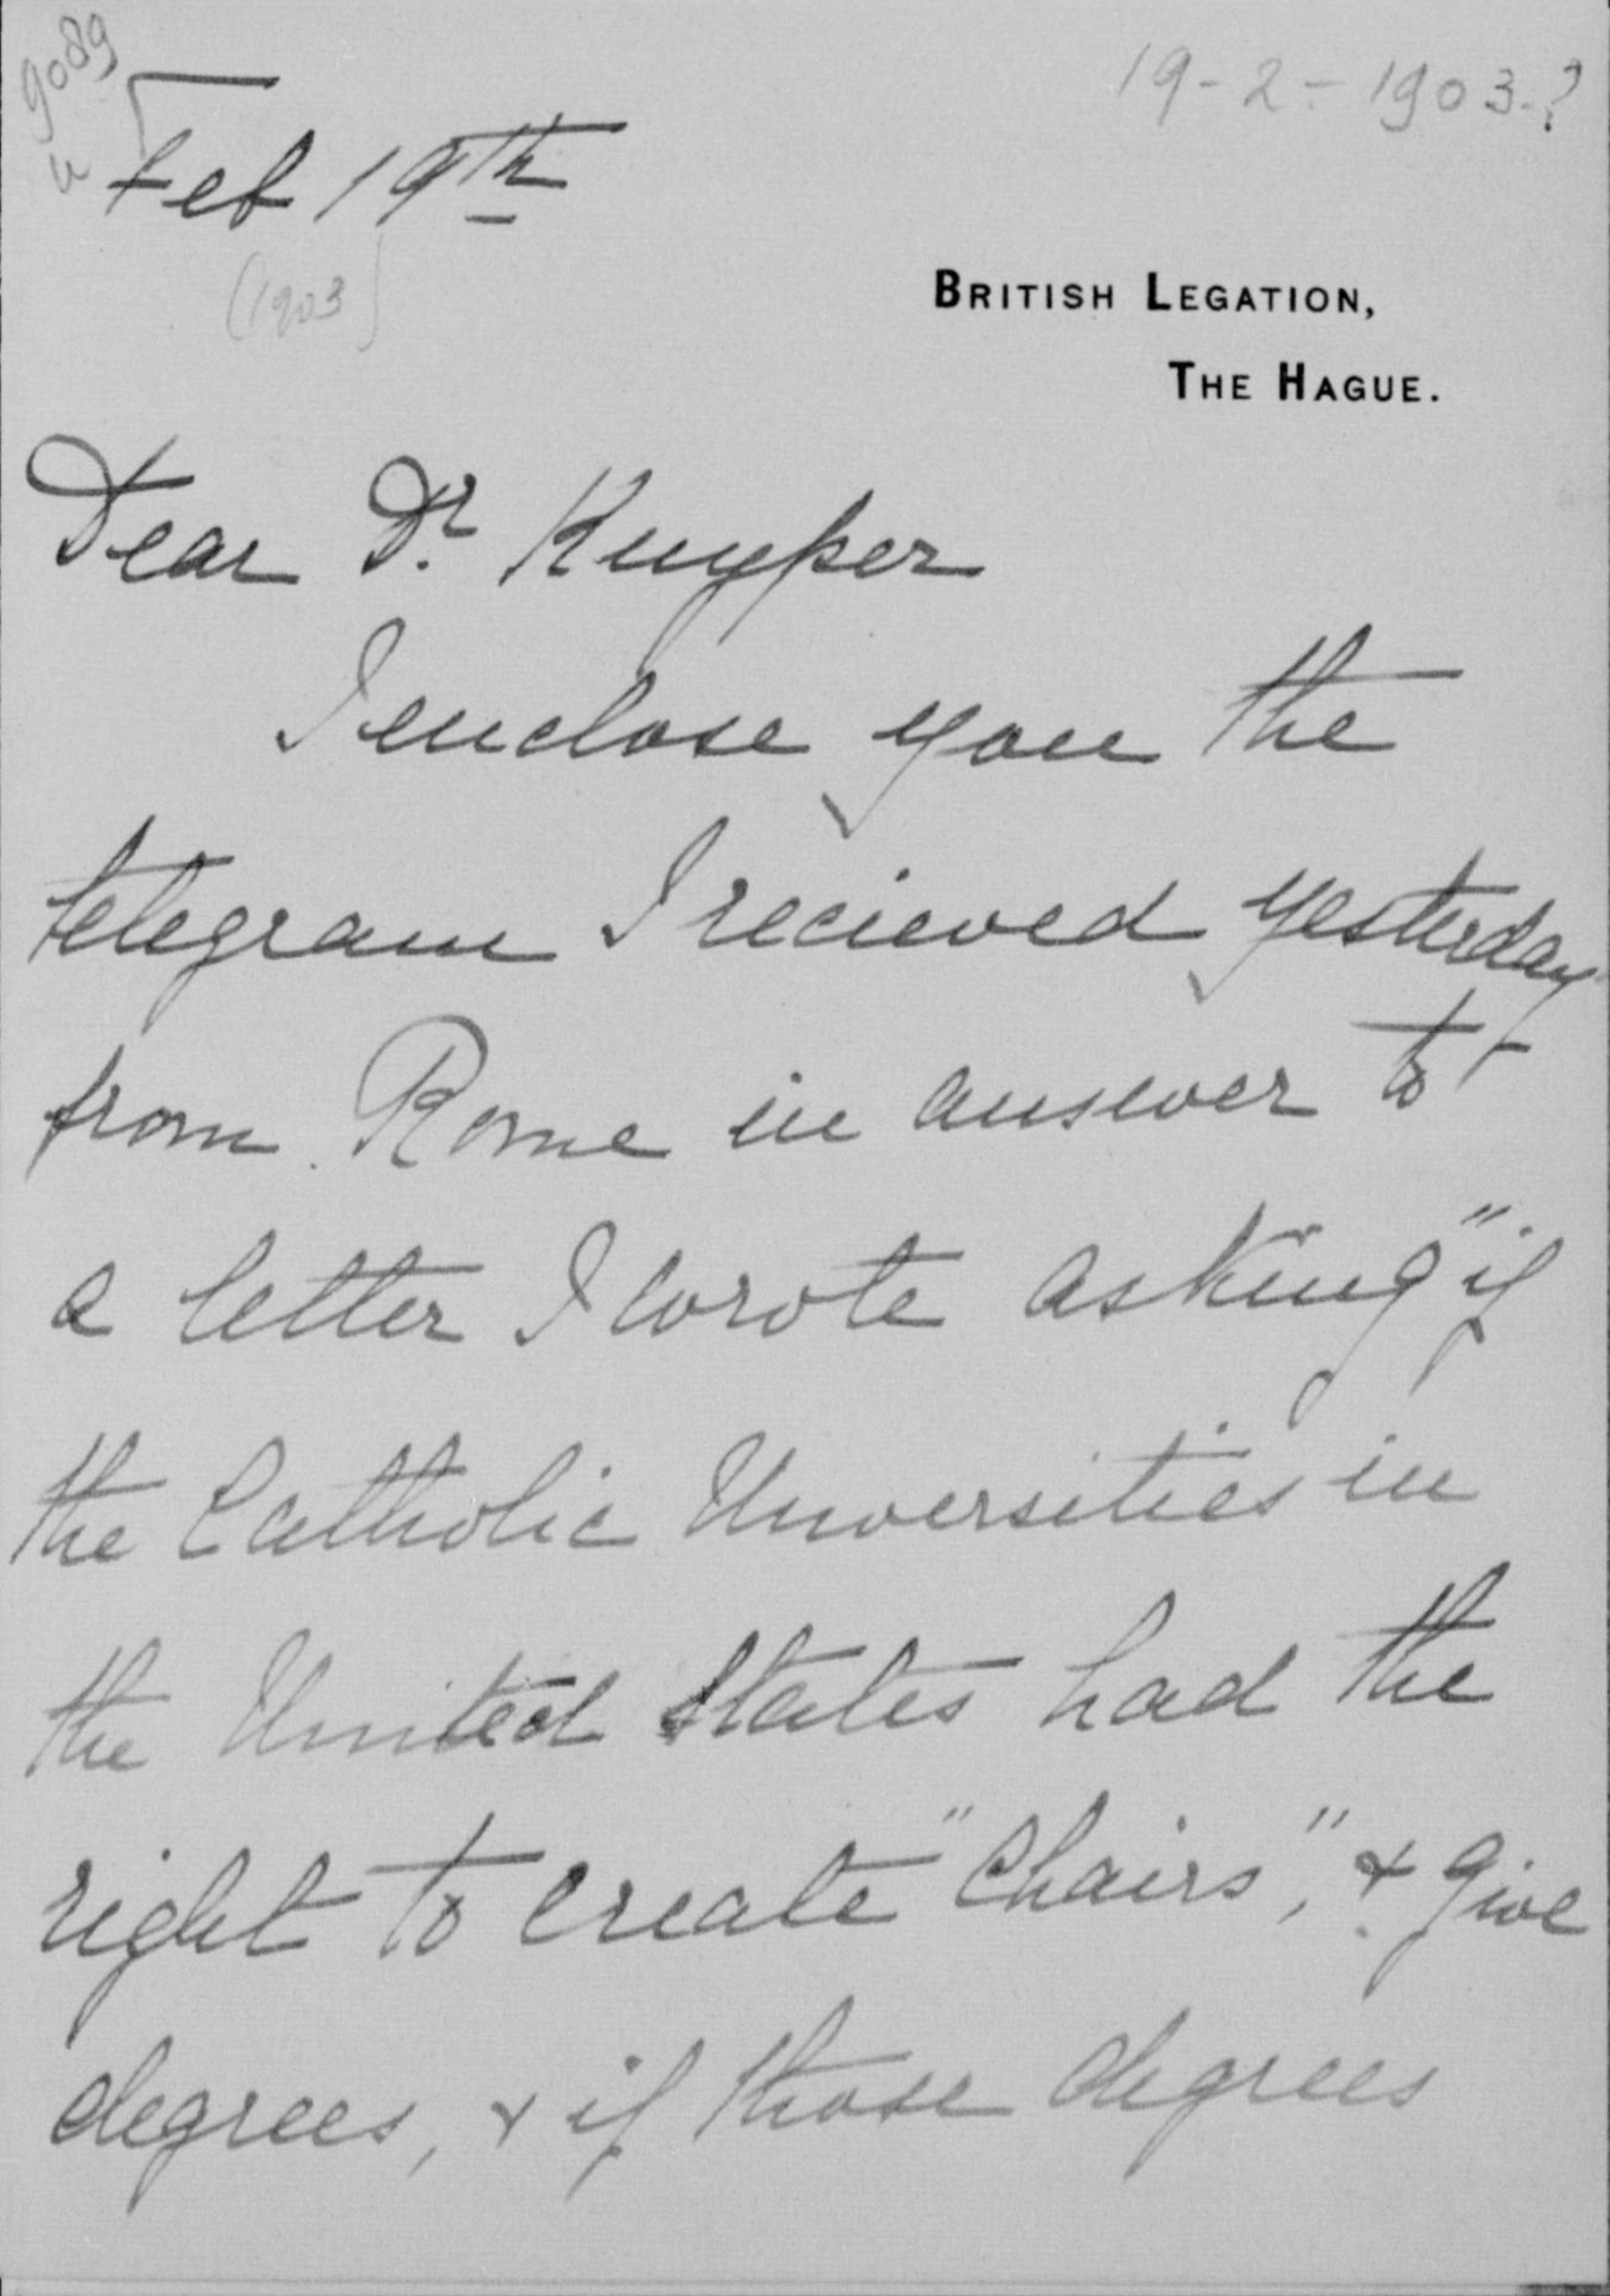 9089
19-2-1903.?
Feb 19th
(1903)
BRITISH LEGATION,
THE HAGUE.
Dear Dr. Kuyper
I enclose you the
telegram I recieved yesterday
from Rome in answer to
a letter I wrote asking "if
the Catholic Universities in
the United States had the
right to create "Chairs", & give
degrees, & if those degrees